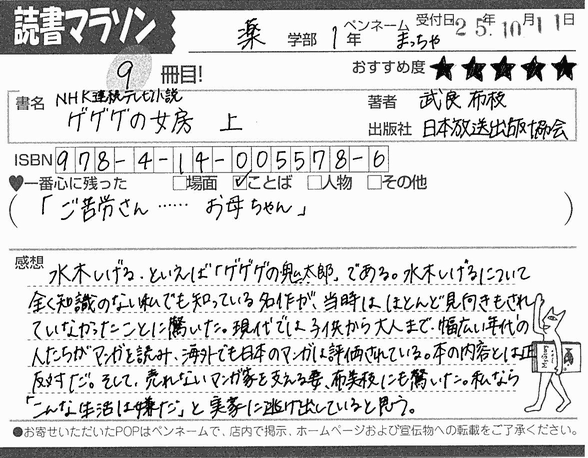 読書マラソン
薬 学部 1年 ペンネーム まっちゃ 受付日 25年10月11日
9 冊目!
おすすめ度 ★★★★★
書名 NHK連続テレビ小説
ゲゲゲの女房 上
著者 武良布枝
出版社 日本放送出版協会
ISBN 978-4-14-005578-6
♥一番心に残った □場面 ☑ことば □人物 □その他
(「ご苦労さん…… お母ちゃん」)
感想 水木しげる、といえば「ゲゲゲの鬼太郎」である。水木しげるについて
全く知識のない私でも知っている名作が、当時はほとんど見向きもされ
ていなかったことに驚いた。現代では子供から大人まで、幅広い年代の
人たちがマンガを読み、海外でも日本のマンガは評価されている。本の内容とは正
反対だ。そして、売れないマンガ家を支える妻、布美枝にも驚いた。私なら
「こんな生活は嫌だ」と実家に逃げ出していると思う。
●お寄せいただいたPOPはペンネームで、店内で掲示、ホームページおよび宣伝物への転載をご了承ください。